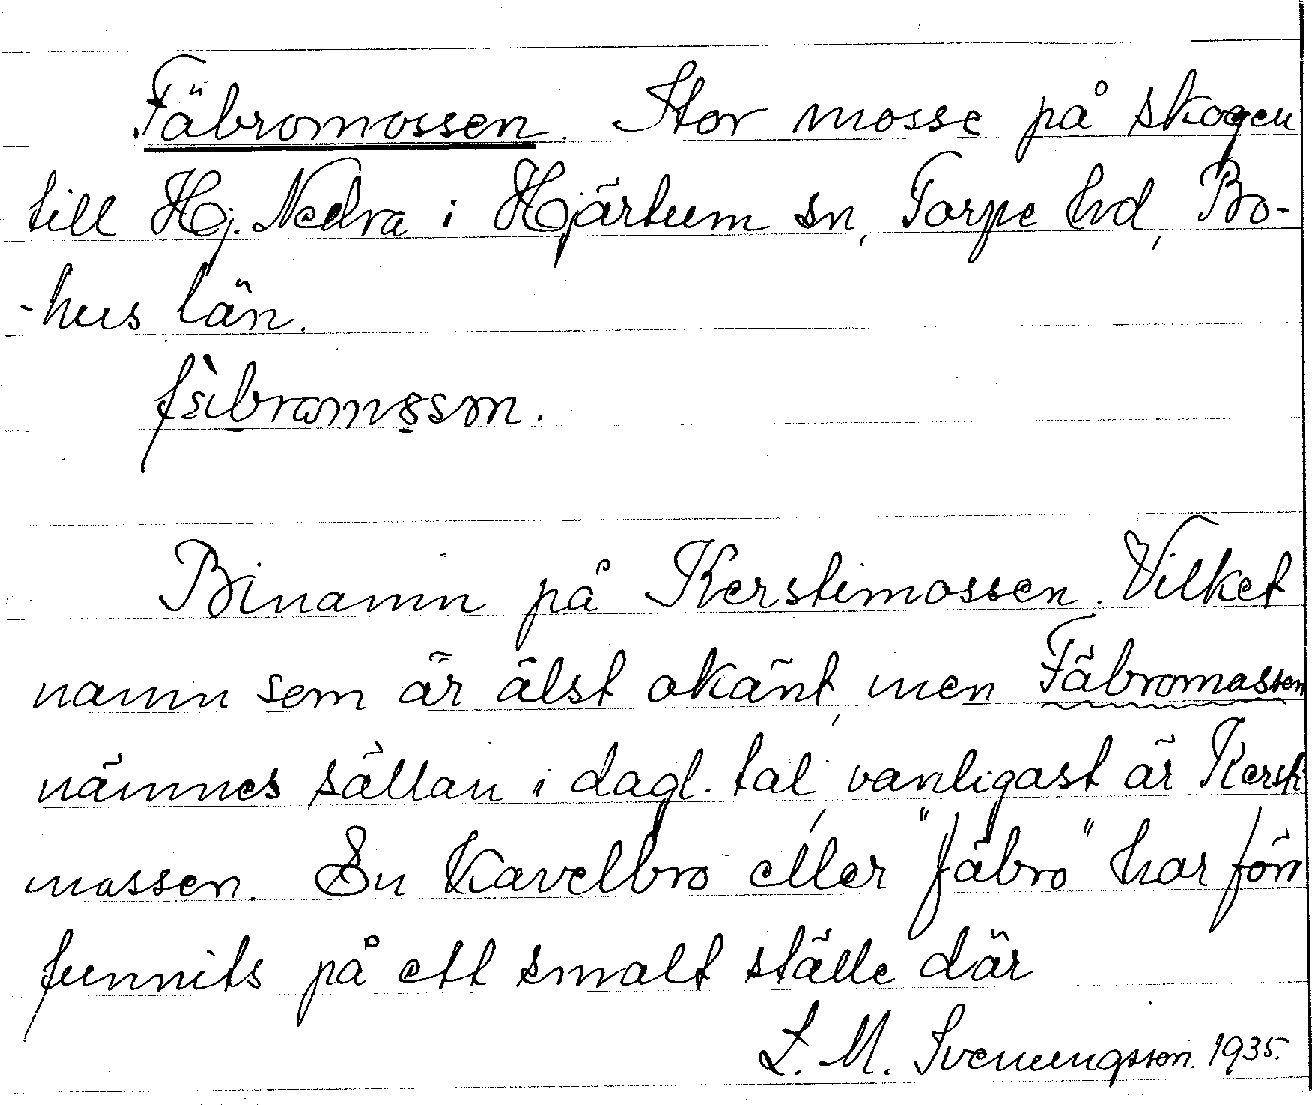 Fäbromossen. Stor mosse på skogen
till Hj. Nedra i Hjärtum sn, Torpe hd, Bo-
-hus län.

Binamn på Kerstimossen. Vilket
namn som är älst okänt, men Fäbromossen
nämnes sällan i dagl. tal, vanligast är Kersti
mossen. En Kavelbro eller "fäbro" har förr
funnits på ett smalt ställe där
L. M. Svenungsson. 1935.